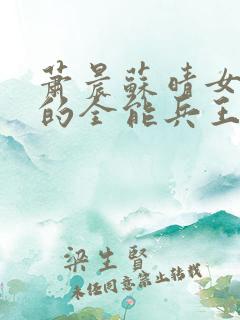 蕭晨蘇晴女
的全能兵王
梁生賢
未经同意禁止转载